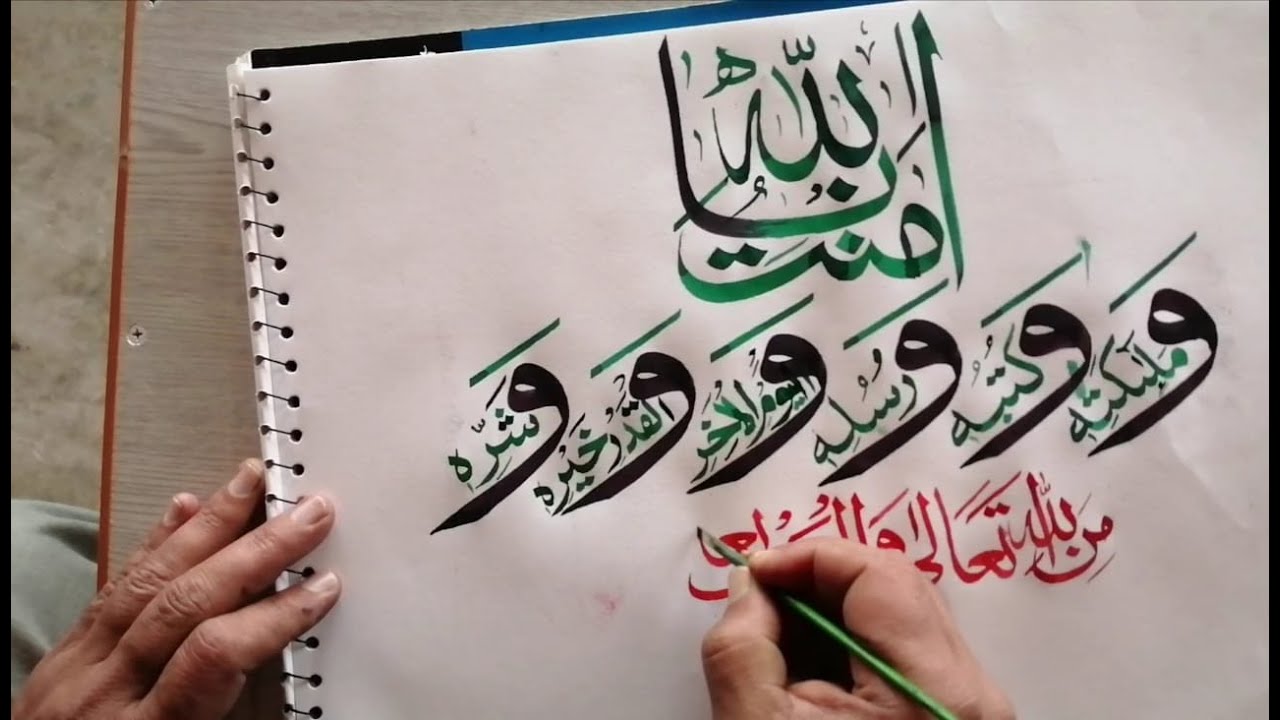 امنت بالله
و ملئكته و كتبه و رسله و اليوم الاخر و القدر خيره و شره
من الله تعالى و